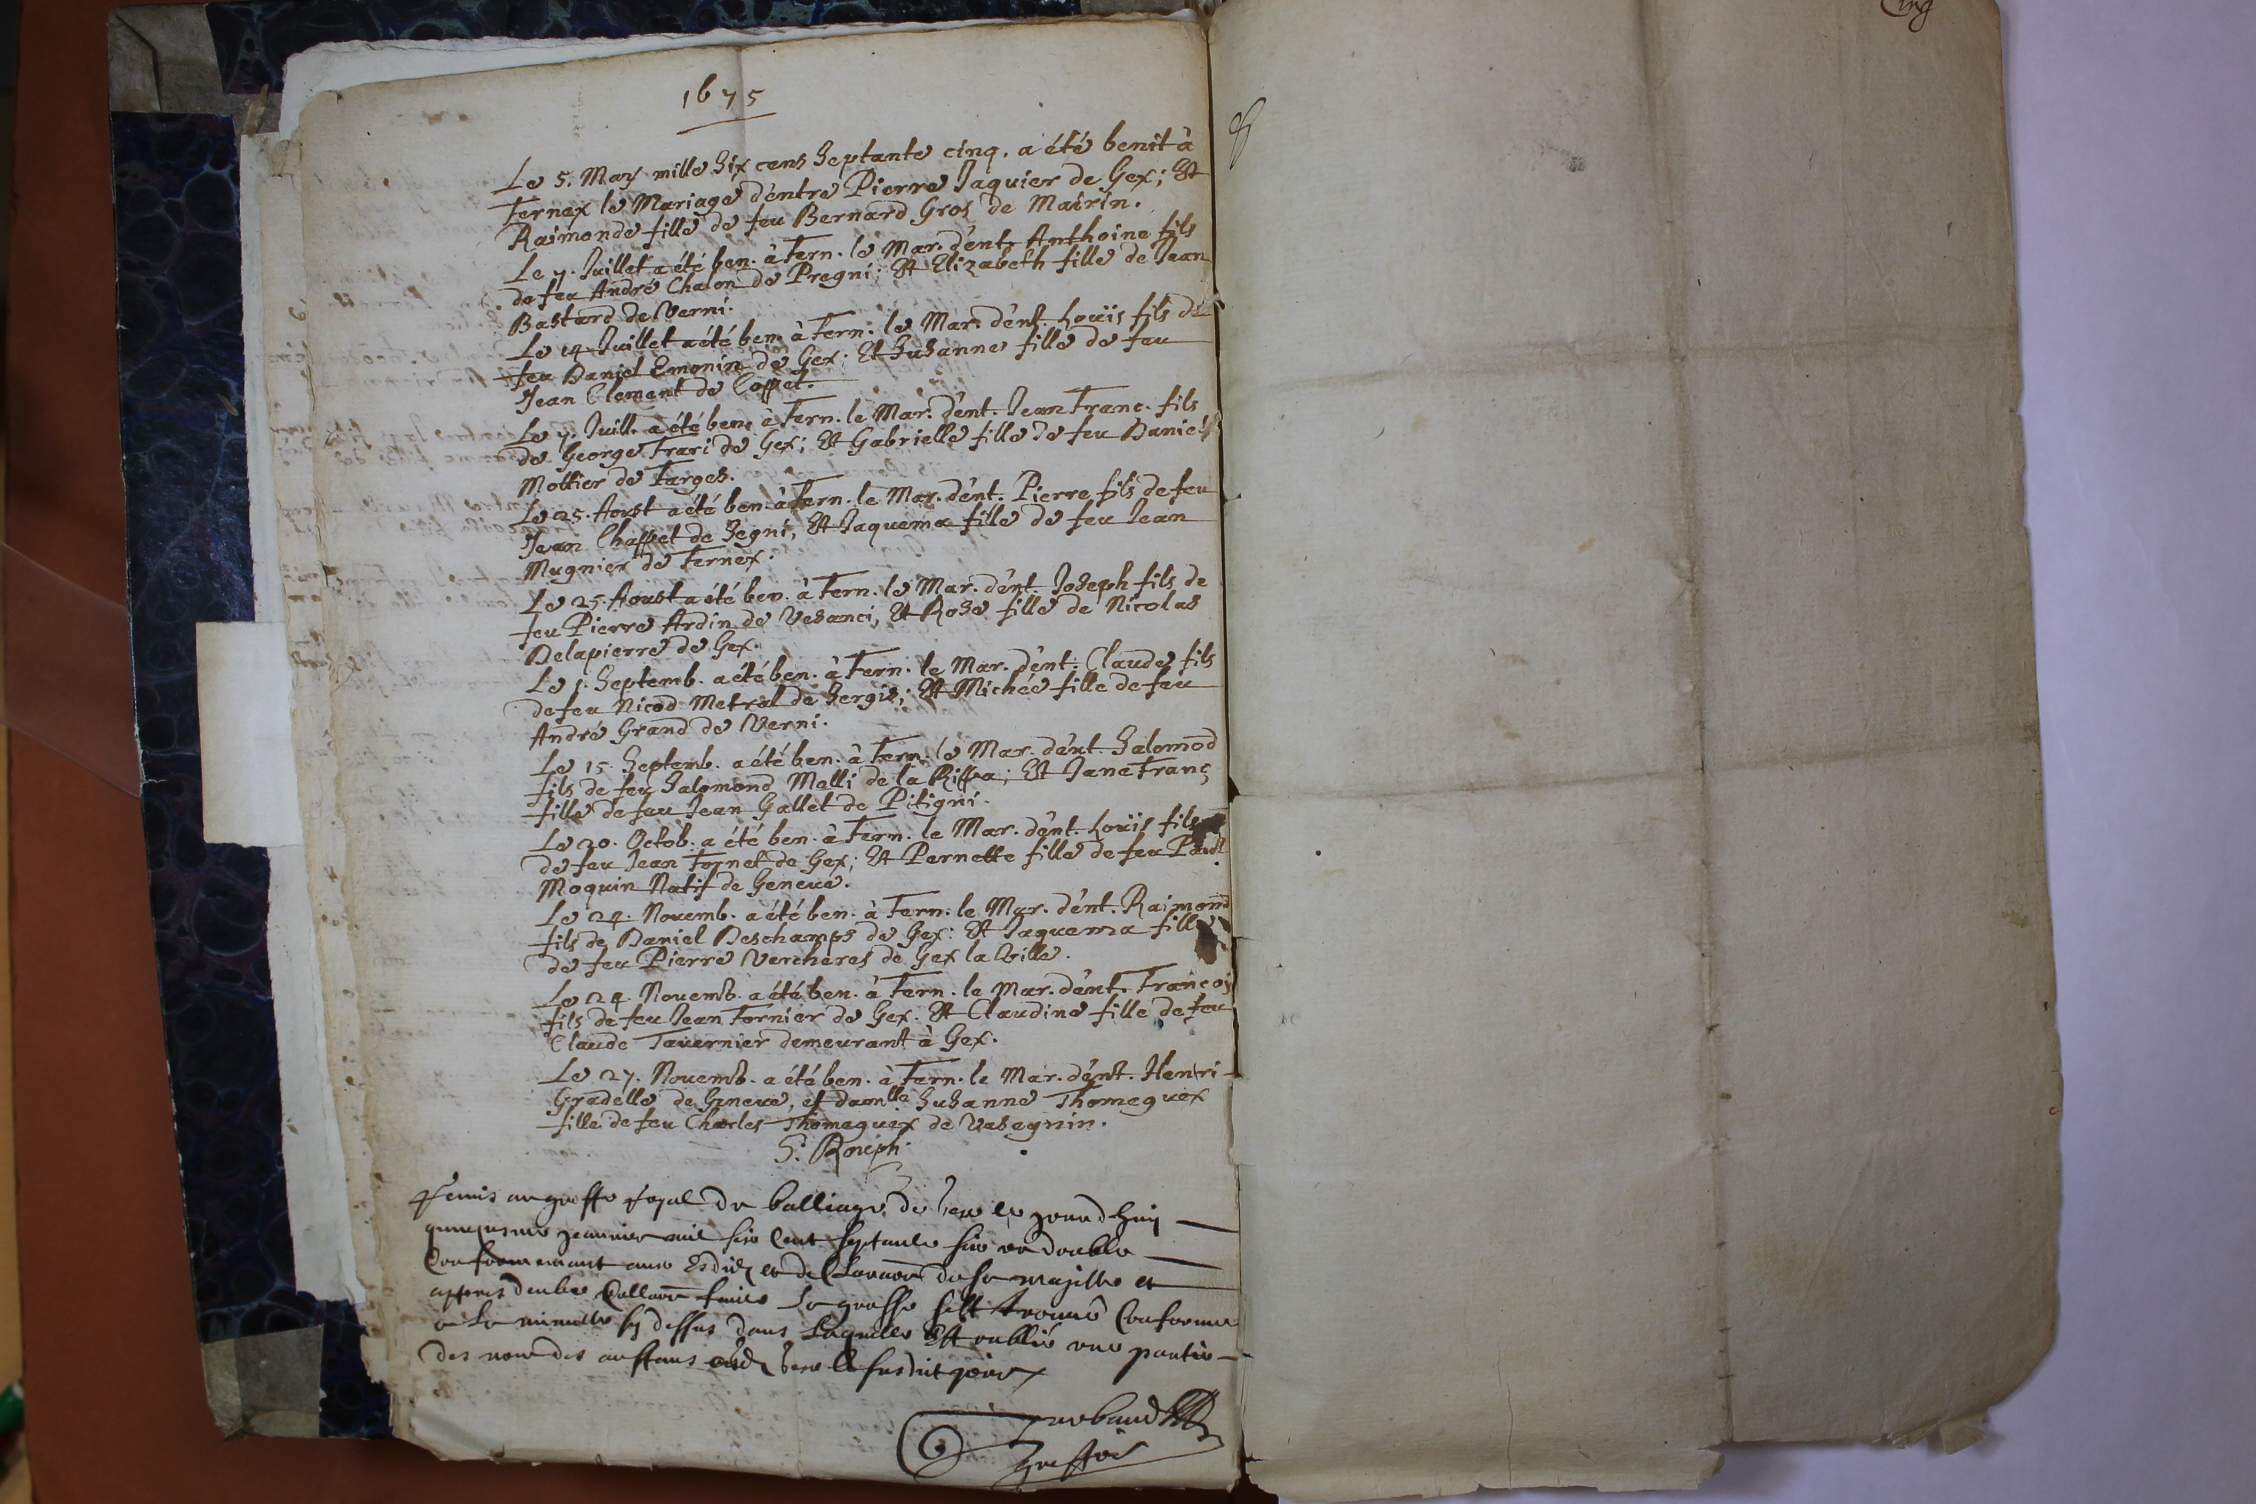 1675
Le 5. May mille Six cens Septante cinq, a été benit à
Fernex le Mariage d'entre Pierre Jaquier de Gex; Et
Raimonde fille de feu Bernard Gros de Mairin.
Le 7. Juillet a été ben. à Fern. le Mar. d'ent. Anthoine fils
de feu André Chalon de Pregni; Et Elizabeth fille de Jean
Bastard de Verni.
Le 14 Juillet a été ben. à Fern. le Mar. d'ent. Louïs fils de
feu Daniel Emonin de Gex; Et Susanne fille de feu
Jean Clement de Coppet.
Le 7. Juill. a été ben. à Fern. le Mar. d'ent. Jean Franc. fils
de George Frari de Gex; Et Gabrielle fille de feu Daniel
Mottier de Farges.
Le 25. Aoust a été ben. à Fern. le Mar. d'ent. Pierre fils de feu
Jean Chappet de Segni, Et Jaquema fille de feu Jean
Mugnier de Fernex.
Le 25. Aoust a été ben. à Fern. le Mar. d'ent. Joseph fils de
feu Pierre Ardin de Vesanci; Et Rose fille de Nicolas
Delapierre de Gex.
Le 1. Septemb. a été ben. à Fern. le Mar. d'ent. Claude fils
de feu Nicod Metral de Sergis; Et Michée fille de feu
André Grand de Verni.
Le 15. Septemb. a été ben. à Fern. le Mar. d'ent. Salomod
fils de feu Salomond Malli de la Rippa; Et Jane Franç
fille de feu Jean Gallet de Pitigni.
Le 20. Octob. a été ben. à Fern. le Mar. d'ent. Louïs fils
de feu Jean Fornet de Gex; Et Pernette fille de feu Paul
Moquin Natif de Geneve.
Le 24. Novemb. a été ben. à Fern. le Mar. d'ent. Raimond
fils de Daniel Deschamps de Gex: Et Jaquema fille
de feu Pierre Vercheres de Gex la Ville.
Le 24. Novemb. a été ben. à Fern. le Mar. d'ent. François
fils de feu Jean Fornier de Gex. Et Claudine fille de feu
Claude Tavernier demeurant à Gex.
Le 27. Novemb. a été ben. à Fern. le Mar. d'ent. Henri
Gradelle de Geneve, et damlle Susanne Thomeguex
fille de feu Charles Thomeguex de Vesegnin.
Remis au greffe royal du balliage de Gex ce jourd'huy
janvier mil six cent septante six en double
Conformement aux Edits et de Sa majesté et
appres faite la grosse s'est trouvé Conforme
a la minutte cy dessus dans laquelle Est oublié une partie
des nom des Gex le susdit jour
greffier
Cinq